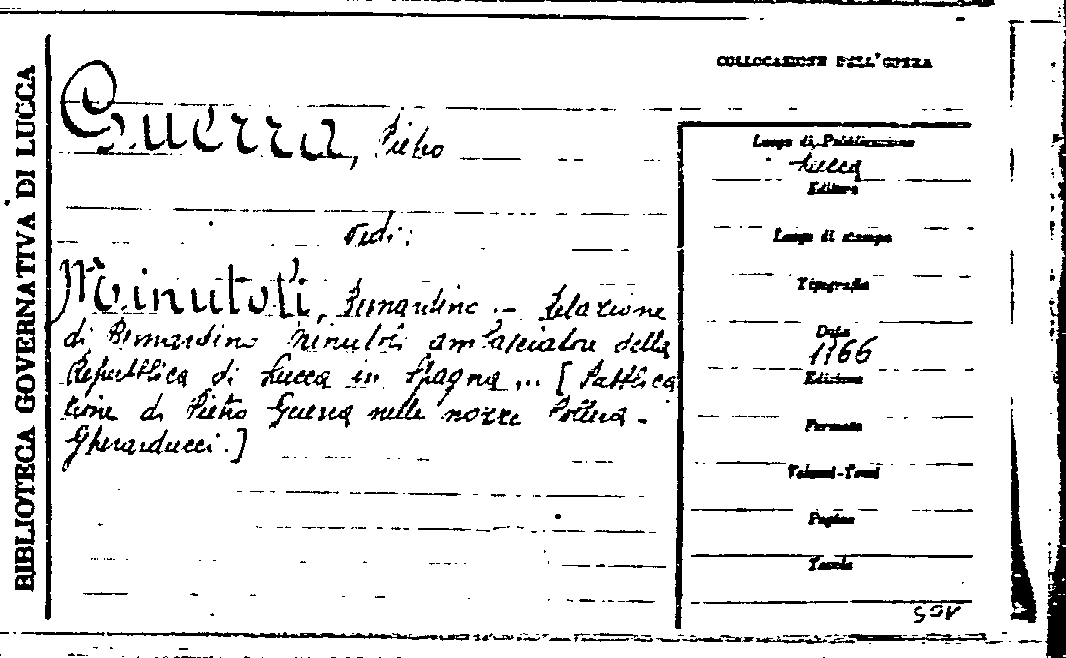 BIBLIOTECA GOVERNATIVA DI LUCCA
COLLOCAZIONE DELL'OPERA
Guerra, Pietro
Vedi:
Minutoli, Bernardino. - Relazione
di Bernardino Minutoli ambasciatore della
Repubblica di Lucca in Spagna... [Pubblica
zione di Pietro Guerra nelle nozze
Gherarducci.]
Luogo di Pubblicazione
Lucca
Editore
Luogo di stampa
Tipografia
Data
Edizione
Formato
Volumi-Tomi
Pagine
Tavole